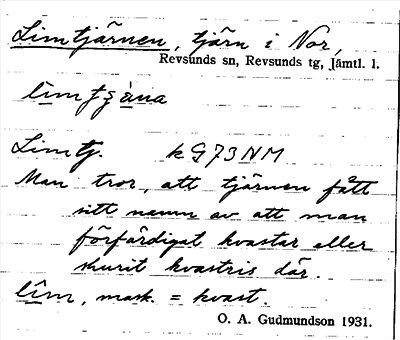 Limtjärnen, tjärn i Nor,
Revsunds sn, Revsunds tg, Jämtl. l.
Limtj. k G73 NM
Man tror, att tjärnen fått
sitt namn av att man
förfärdigat kvastar eller
skurit kvastris där.
lîm, mask. = kvast.
O. A. Gudmundson 1931.